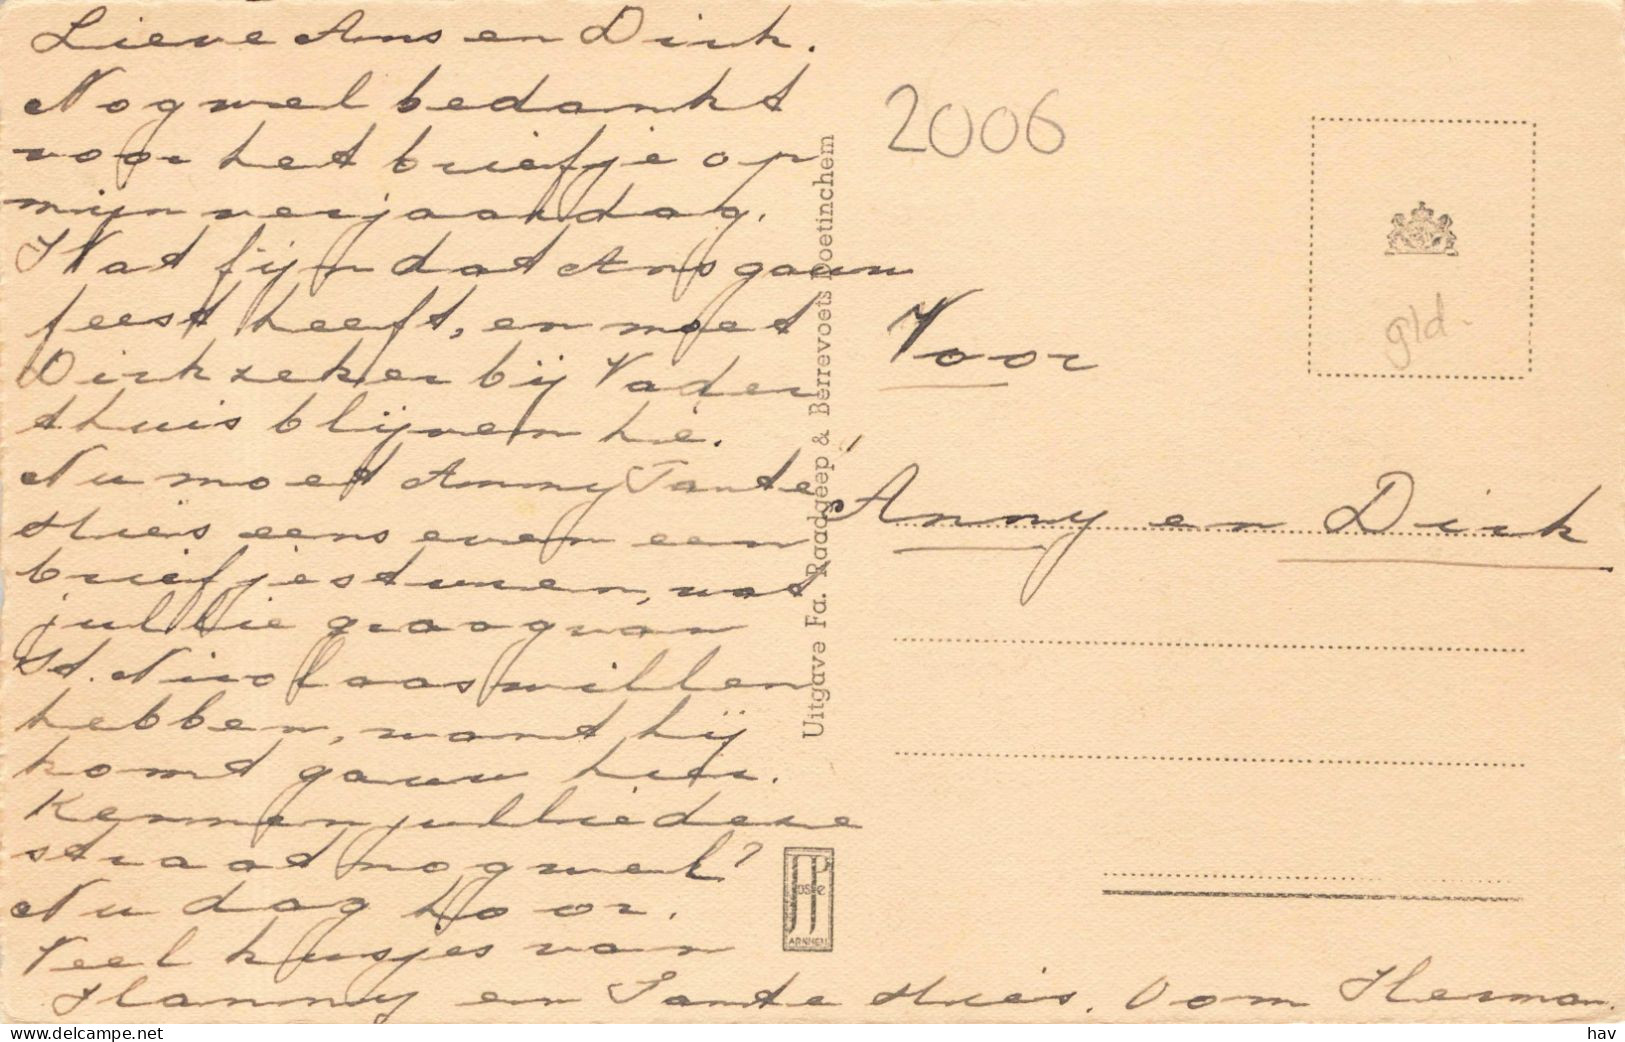 Lieve Ans en Dirk.
Nog wel bedankt
voor het briefje op
mijn verjaardag.
Wat fijn dat Ans gauw
feest heeft, en moet
Dirk zeker bij Vader
thuis blijven hè.
Nu moet Anny Tante
Mies eens even een
briefje sturen, wat
jullie graag van
St. Nicolaas willen
hebben, want hij
komt gauw hier.
Kennen jullie deze
straat nog wel?
Nu dag hoor.
Veel kusjes van
Hanny en Tante Mies. Oom Herman.
2006
gld.
Voor
Anny en Dirk
Uitgave Fa. Raadgeep & Berrevoets Doetinchem
JosPé
ARNHEM
hav